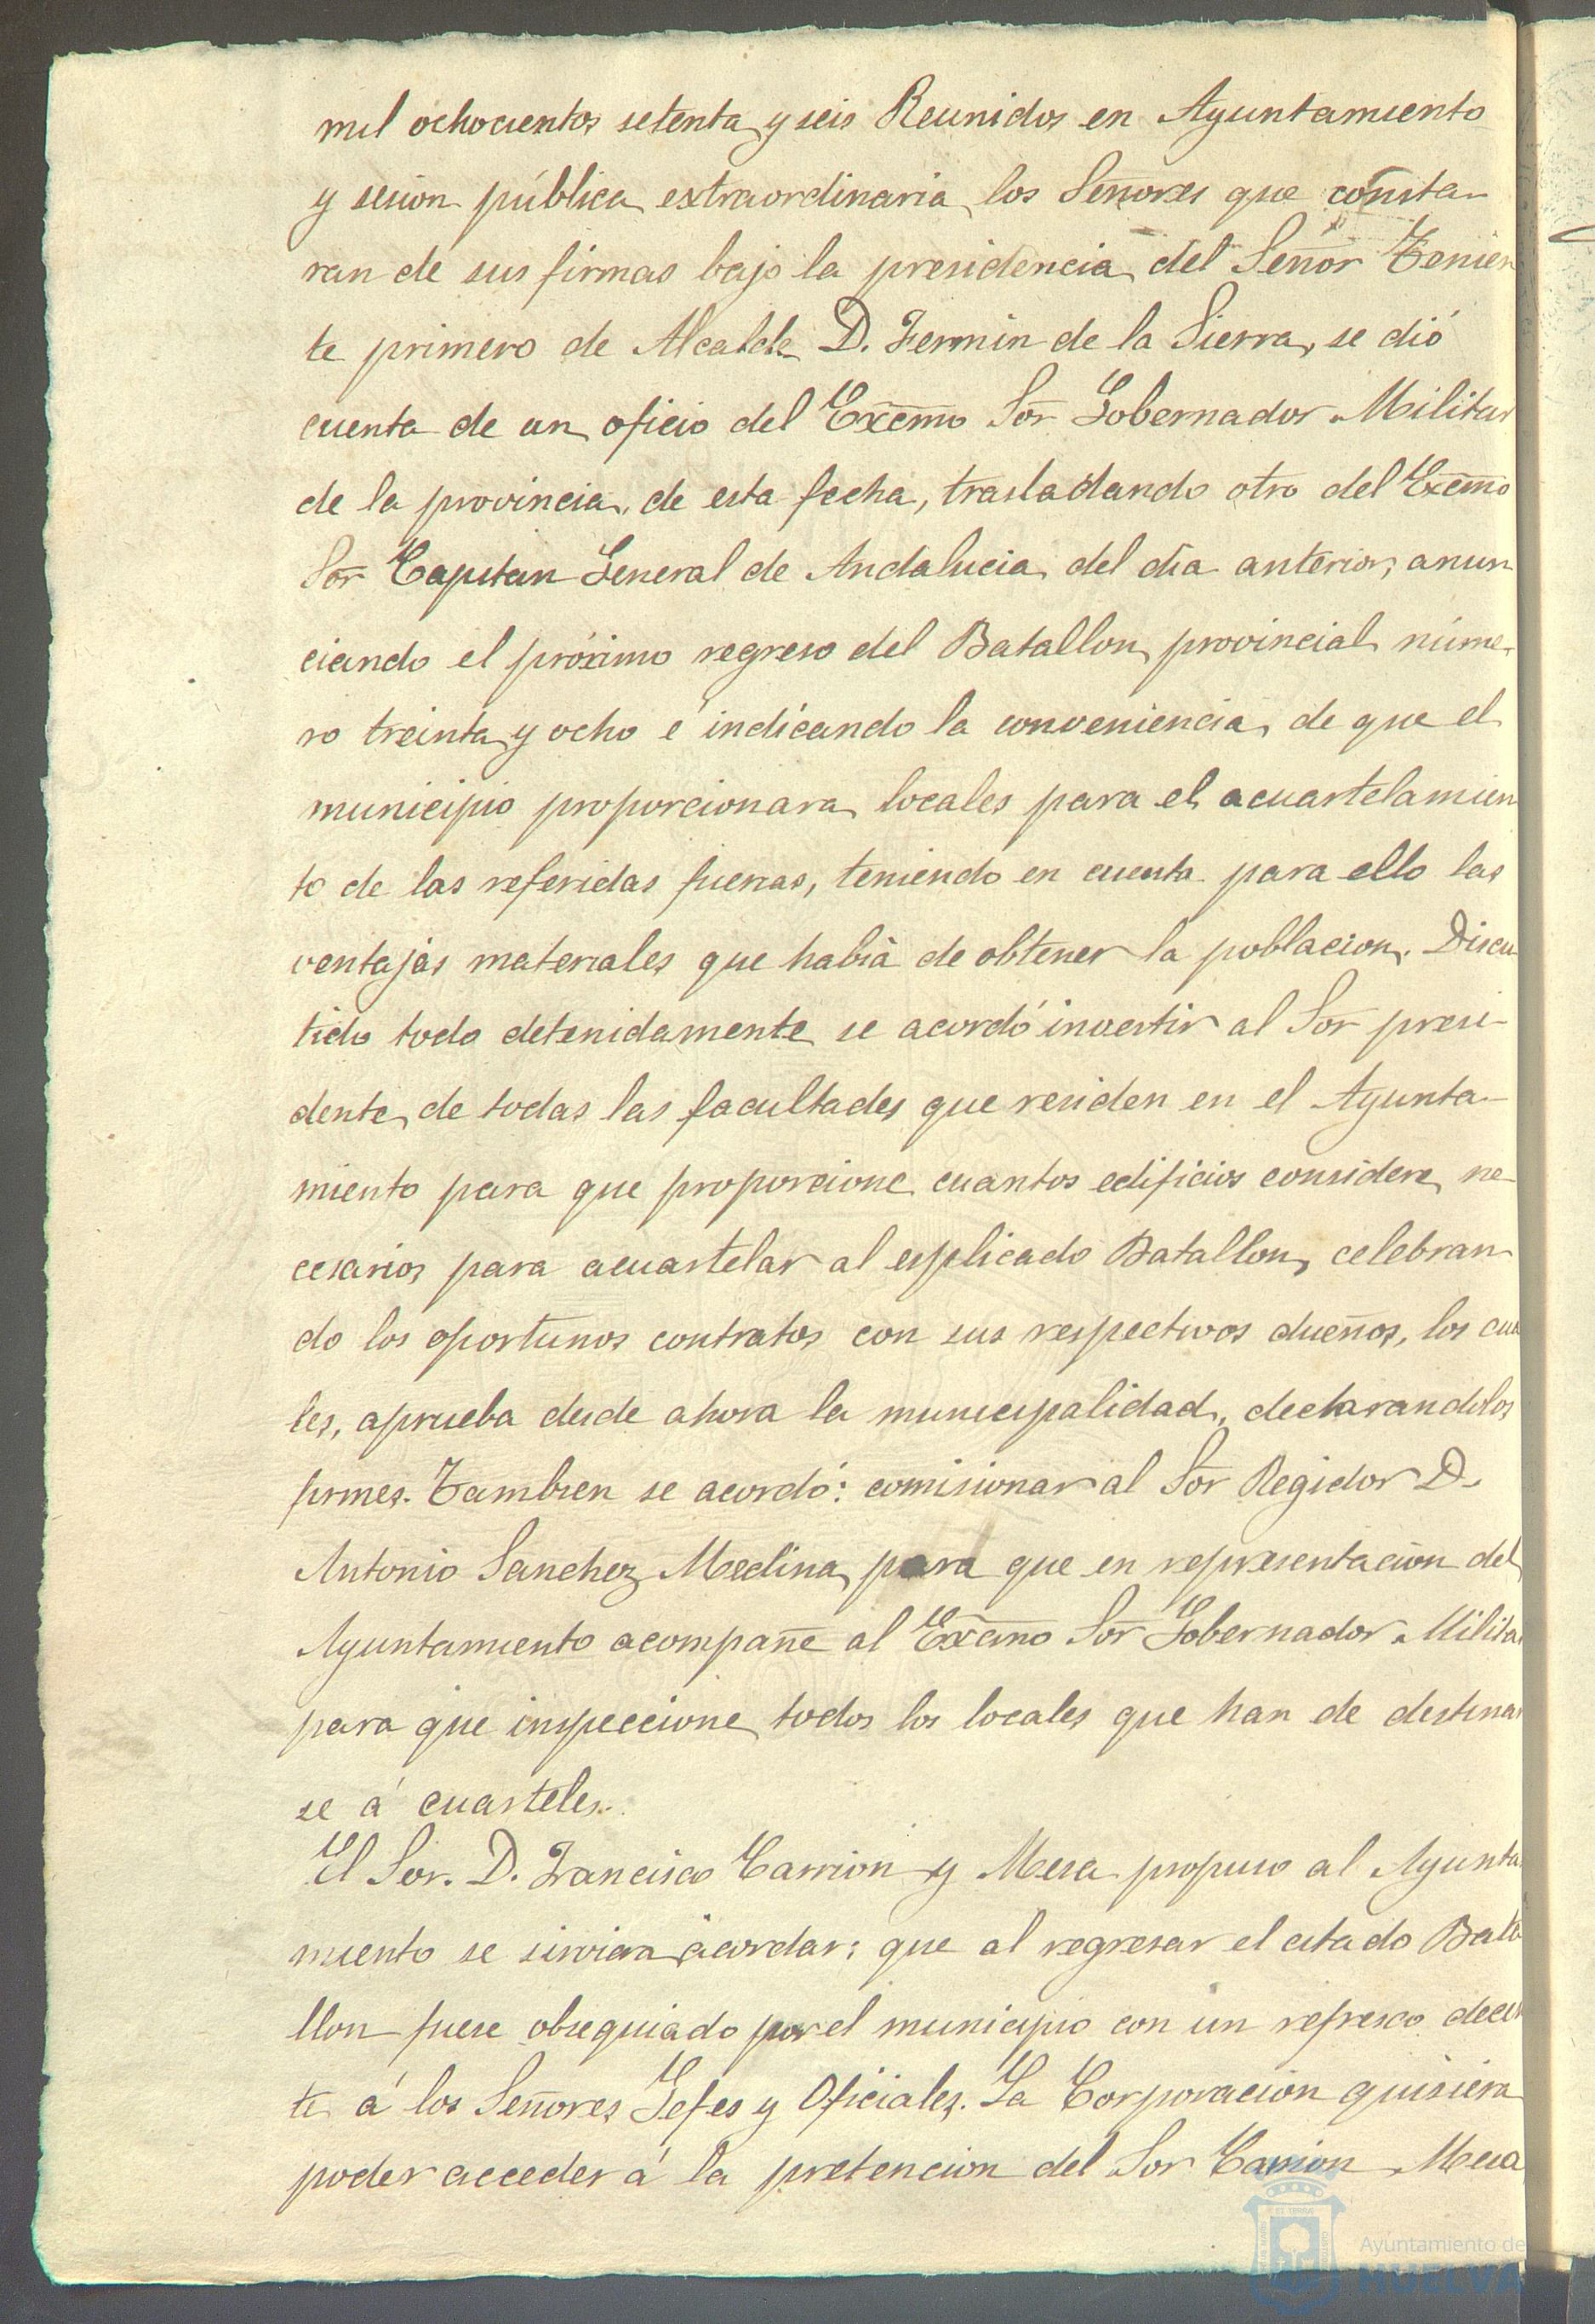 mil ochocientos setenta y seis Reunidos en Ayuntamiento
y sesion pública extraordinaria los Señores que consta-
ran de sus firmas bajo la presidencia del Señor Tenien
te primero de Alcalde D. Fermin de la Sierra, se dió
cuenta de un oficio del Excmo Sor Gobernador Militar
de la provincia, de esta fecha, trasladando otro del Excmo
Sor Capitan General de Andalucia del dia anterior, anun
ciando el próximo regreso del Batallon provincial núme-
ro treinta y ocho é indicando la conveniencia de que el
municipio proporcionara locales para el acuartelamien
to de las referidas fuerzas, teniendo en cuenta para ello las
ventajas materiales que habia de obtener la poblacion. Discu
tido todo detenidamente se acordó investir al Sor presi-
dente de todas las facultades que residen en el Ayunta-
miento para que proporcione cuantos edificios considere ne-
cesarios para acuartelar al esplicado Batallon, celebran
do los oportunos contratos con sus respectivos dueños, los cua
les, aprueba desde ahora la municipalidad, declarandolos
firmes. Tambien se acordó: comisionar al Sor Regidor D.
Antonio Sanchez Medina para que en representacion del
Ayuntamiento acompañe al Excmo Sor Gobernador Militar
para que inspeccione todos los locales que han de destinar
se á cuarteles.
El Sor. D. Francisco Carrion y Mesa propuso al Ayunta
miento se sirviera acordar: que al regresar el citado Bata
llon fuese obsequiado por el municipio con un refresco decen
te á los Señores Gefes y Oficiales. La Corporacion quisiera
poder acceder á la pretencion del Sor Carrion Mesa
Ayuntamiento de
HUELVA